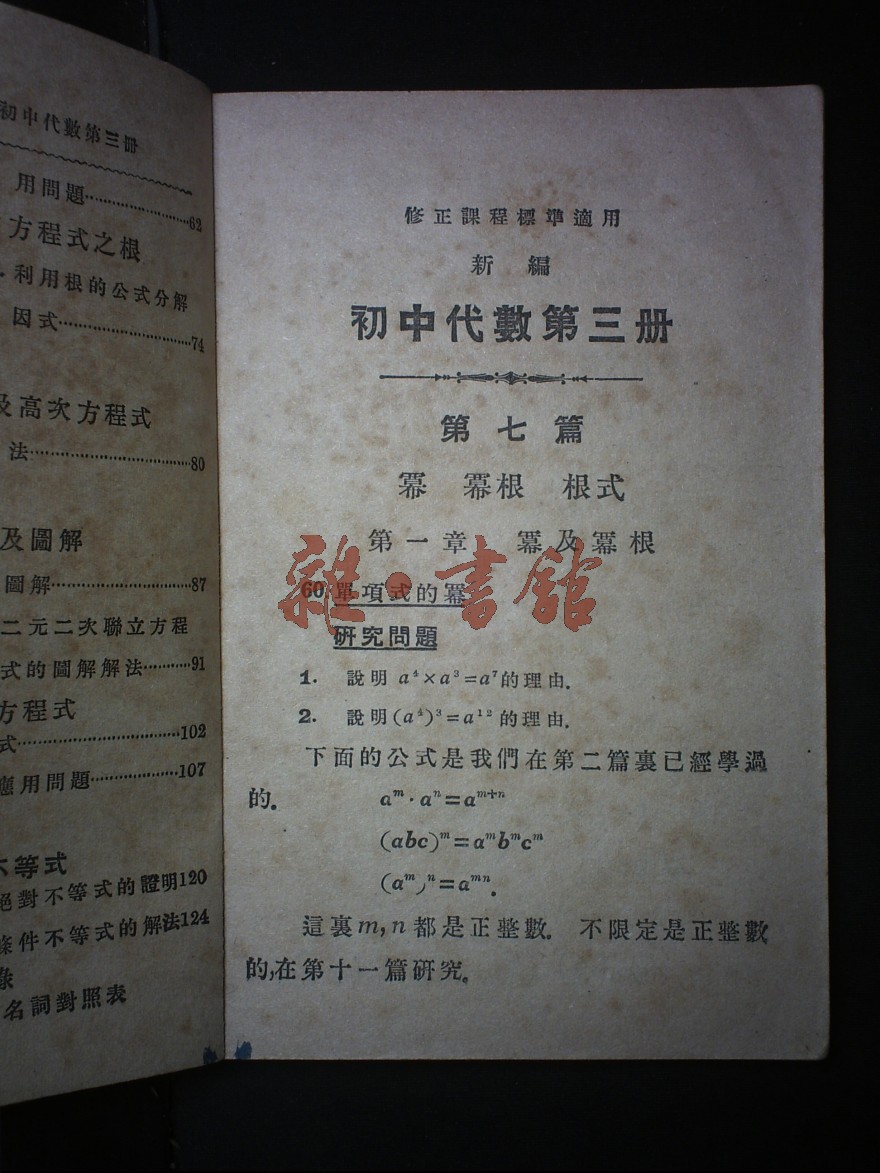 初中代數第三册
用問題……62
方程式之根
利用根的公式分解
因式……74
及高次方程式
法……80
及圖解
圖解……87
二元二次聯立方程
式的圖解解法……91
方程式
式……102
應用問題……107
不等式
絕對不等式的證明120
條件不等式的解法124
錄
名詞對照表
修正課程標準適用
新編
初中代數第三册
第七篇
冪 冪根 根式
第一章 冪及冪根
60 單項式的冪
研究問題
1. 說明 a⁴×a³=a⁷的理由.
2. 說明(a⁴)³=a¹²的理由.
下面的公式是我們在第二篇裏已經學過
的. aᵐ·aⁿ=aᵐ⁺ⁿ
(abc)ᵐ=aᵐbᵐcᵐ
(aᵐ)ⁿ=aᵐⁿ.
這裏m,n都是正整數. 不限定是正整數
的,在第十一篇研究.
雜·書館